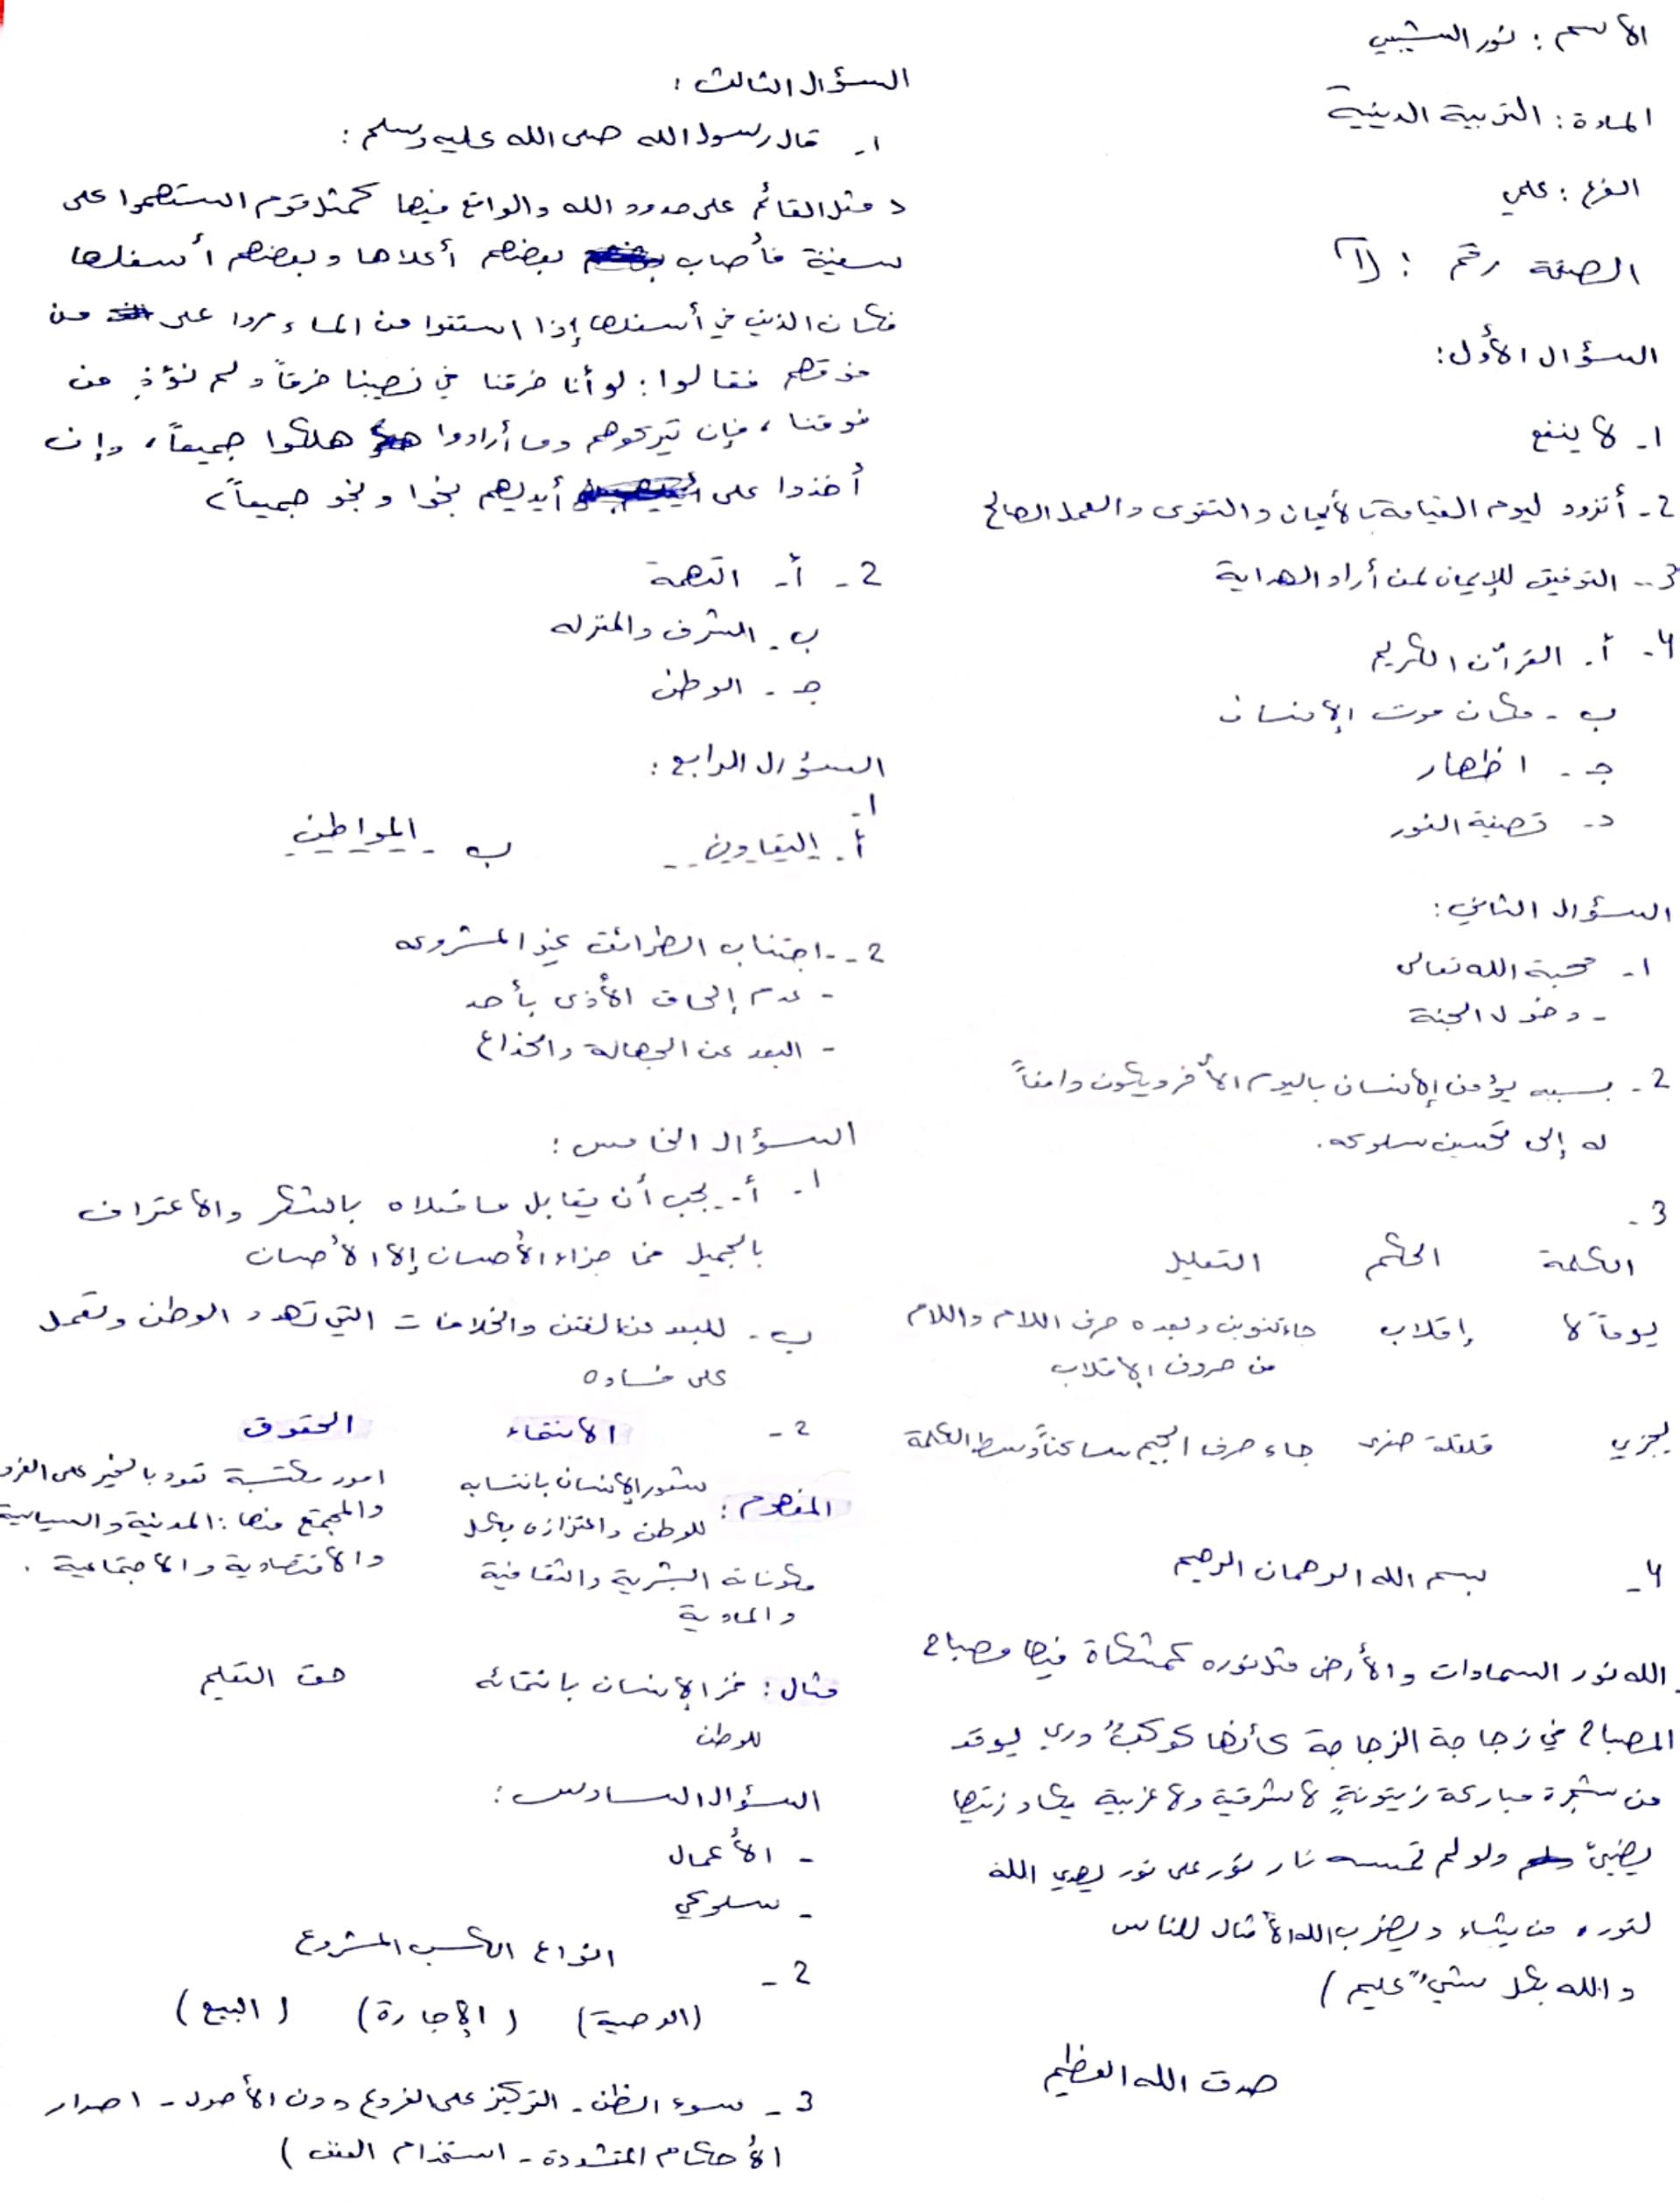 الاسم : نور الشيبي
المادة : التربية الدينية
الفرع : علمي
الصفحة رقم : (1)
السؤال الأول :
1- لا ينفع
2- أتزود ليوم القيامة بالأيمان والتقوى والعمل الصالح
3- التوفيق للإيمان لمن أراد الهداية
4- أ. القرآن الكريم
ب - مكان موت الإنسان
جـ - اظهار
د - تصفية النور
السؤال الثاني :
1- محبة الله تعالى
- دخول الجنة
2- بسببه يؤمن الإنسان باليوم الآخر ويكون دافعاً
له إلى تحسين سلوكه .
3-
الكلمة الحكم التعليل
يوماً لا إقلاب جاء تنوين وبعده حرف اللام واللام
من حروف الإقلاب
يجزي قلقلة صغرى جاء حرف الجيم ساكناً وسط الكلمة
4- بسم الله الرحمان الرحيم
الله نور السماوات والأرض مثل نوره كمشكاة فيها مصباح
المصباح في زجاجة الزجاجة كأنها كوكبٌ دري يوقد
من شجرة مباركة زيتونةٍ لا شرقية ولا غربية يكاد زيتها
يضيئ ولو لم تمسسه نار نور على نور يهدي الله
لنوره من يشاء ويضرب الله الأمثال للناس
والله بكل شيءٍ عليم )
صدق الله العظيم
السؤال الثالث :
1- قال رسول الله صلى الله عليه وسلم :
« مثل القائم على حدود الله والواقع فيها كمثل قوم استهموا على
سفينة فأصاب بعضهم أعلاها وبعضهم أسفلها
فكان الذين في أسفلها إذا استقوا من الماء مروا على من
فوقهم فقالوا : لو أنا خرقنا في نصيبنا خرقاً ولم نؤذِ من
فوقنا ، فإن تتركوهم وما أرادوا هلكوا جميعاً ، وإن
أخذوا على أيديهم نجوا ونجو جميعاً »
2 - أ - التهمة
ب - الشرف والمنزله
جـ - الوطن
السؤال الرابع :
1-
أ - التعاون ب - المواطن
2 - - اجتناب الطرائق غير المشروعه
- عدم إلحاق الأذى بأحد
- البعد عن الجهالة والخداع
السؤال الخامس :
1- أ - يجب أن يقابل ما فعلاه بالشكر والاعتراف
بالجميل فما جزاء الأحسان إلا الأحسان
ب - للبعد عن الفتن والخلافات التي تهدد الوطن وتعمل
على فساده
2 - الانتماء الحقوق
المفهوم : شعور الإنسان بانتسابه امور مكتسبة تعود بالخير على الفرد
للوطن واعتزازه بكل والمجتمع منها : المدنية والسياسية
مكوناته البشرية والثقافية والأقتصادية والاجتماعية .
والمادية
مثال : فخر الإنسان بانتمائه حق التعليم
للوطن
السؤال السادس :
- الأعمال
- سلوكي
2 - انواع الكسب المشروع
(الوصية) (الإجارة) (البيع)
3 - سوء الظن - التركيز على الفروع دون الأصول - اصدار
الأحكام المتشددة - استخدام العنف )